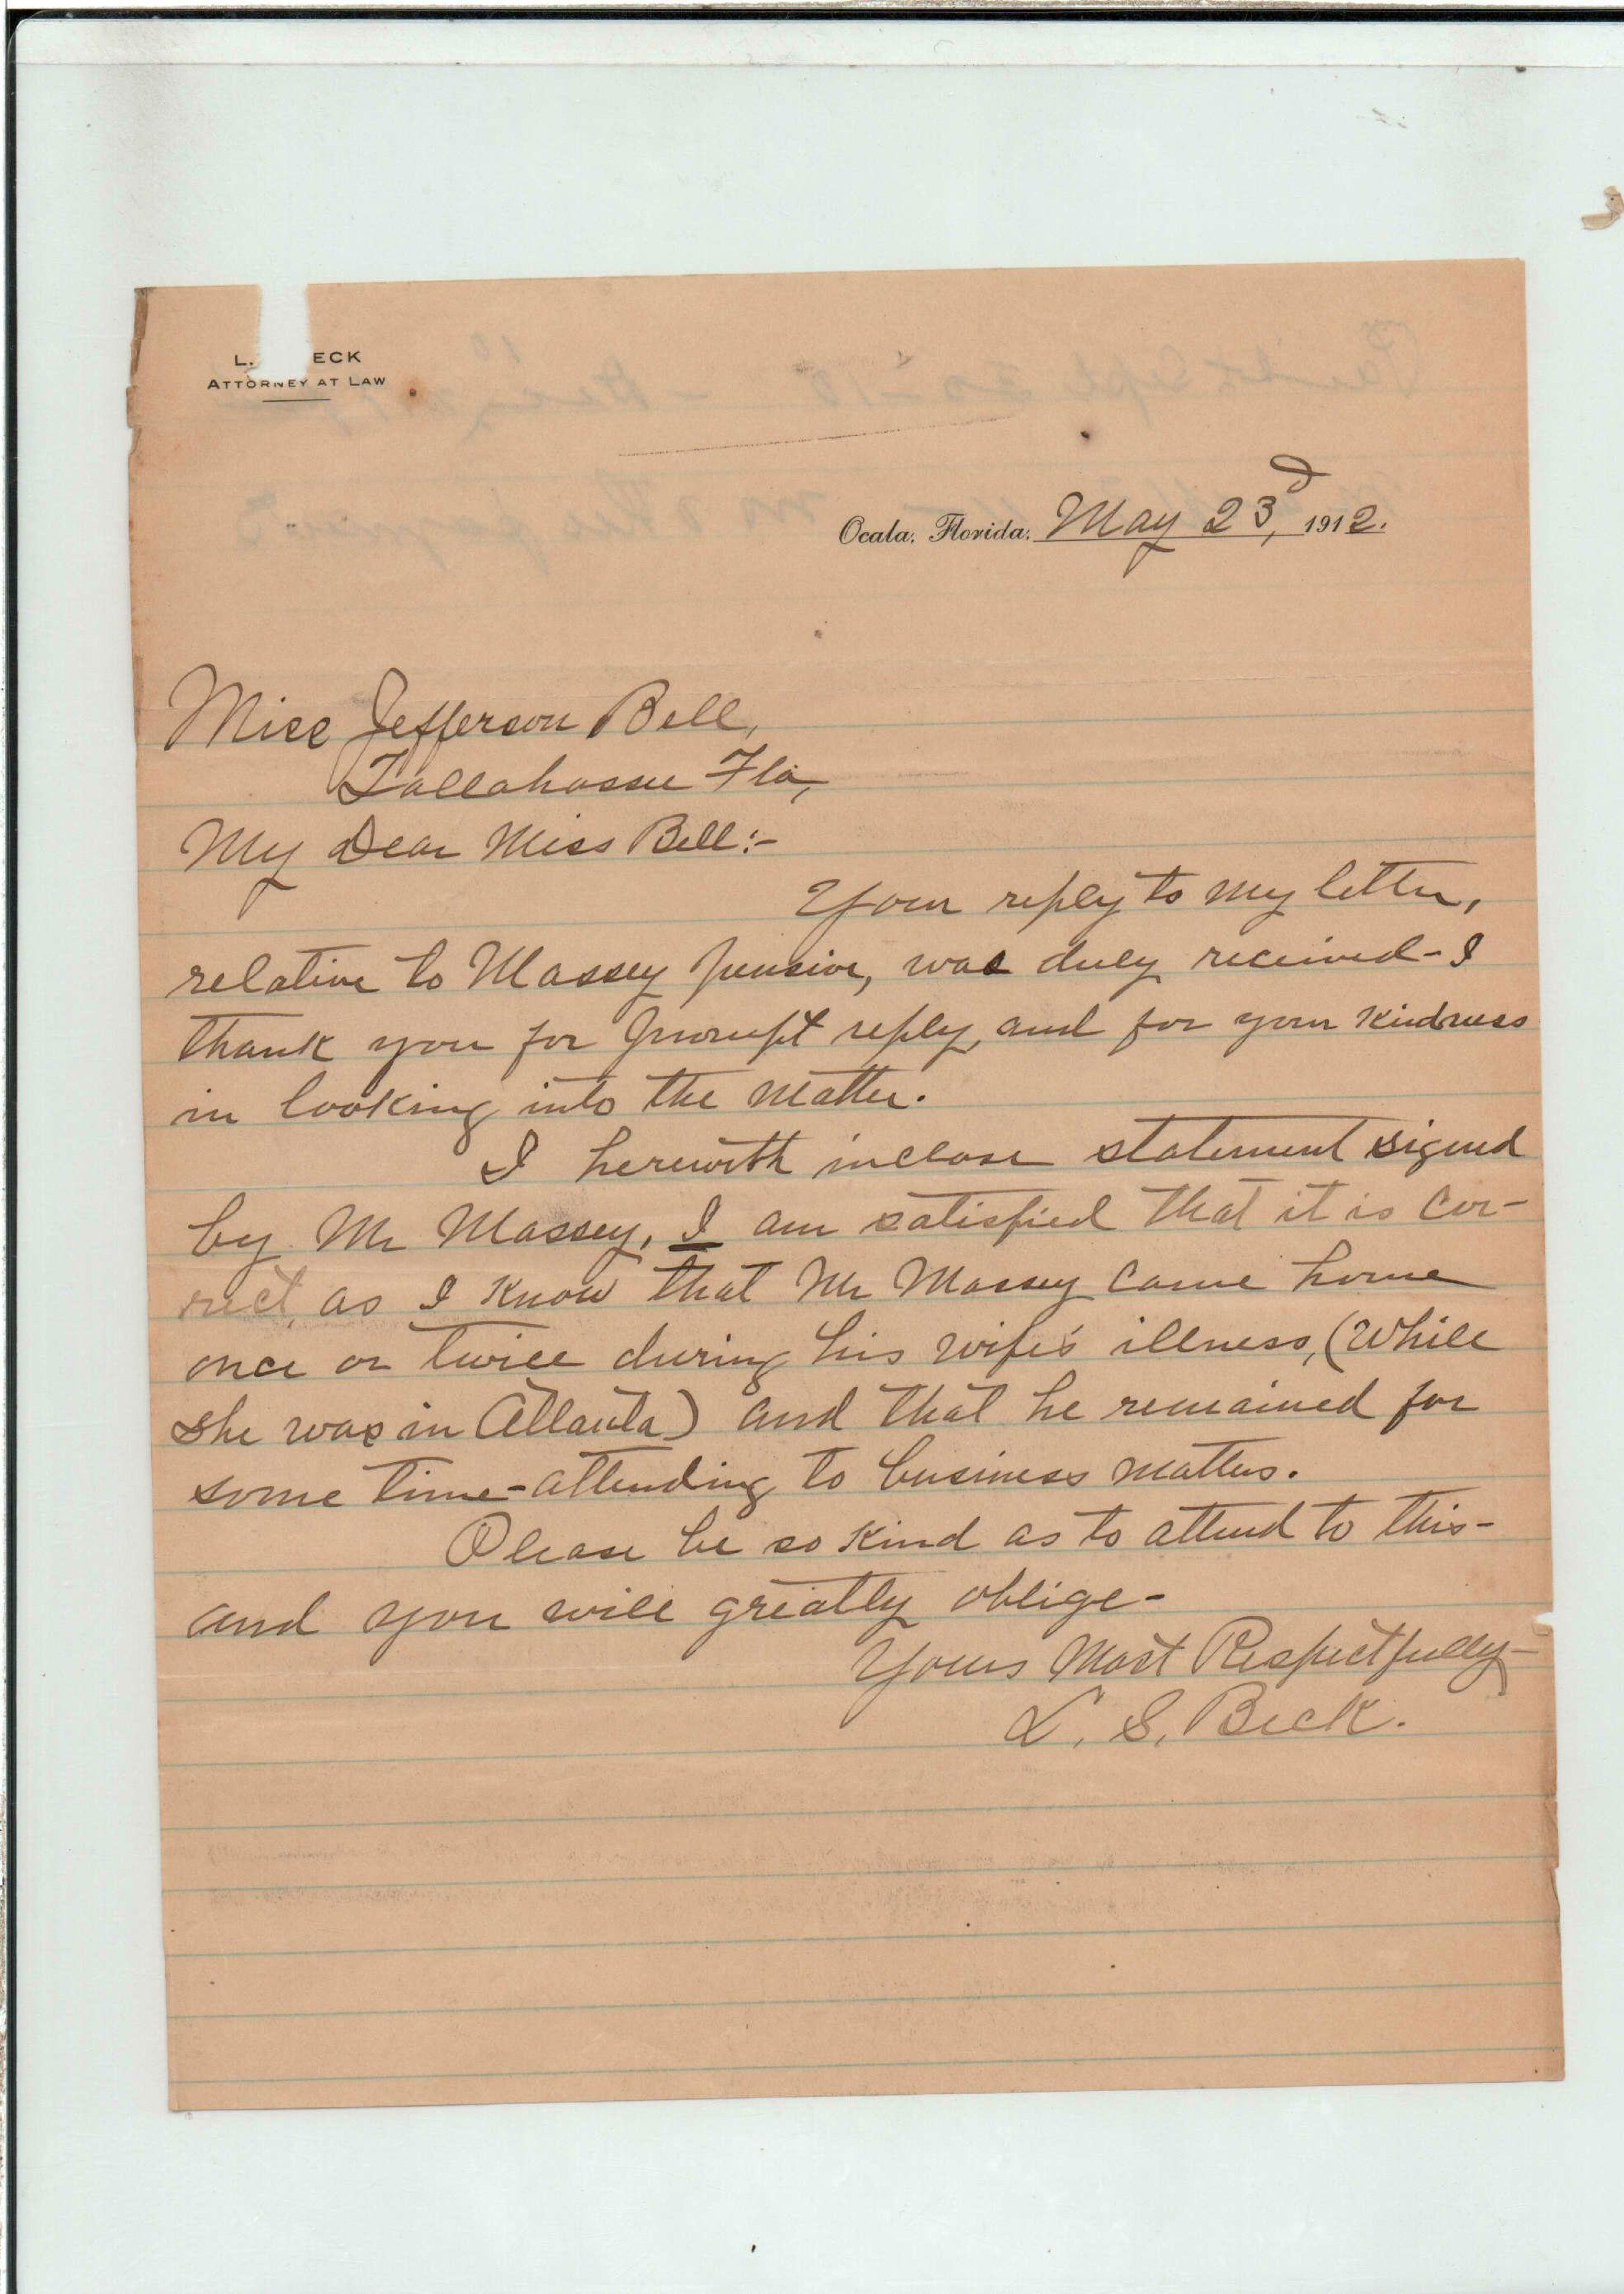 L. ECK
ATTORNEY AT LAW
Ocala, Florida, May 23d, 1912.
Miss Jefferson Bell,
Tallahassee Fla,
My Dear Miss Bell:-
Your reply to my letter,
relative to Massey pension, was duly received - I
thank you for prompt reply, and for your kindness
in looking into the matter.
I herewith inclose statement signed
by Mr Massey, I am satisfied that it is cor-
rect, as I know that Mr Massey came home
once or twice during his wife's illness, (While
she was in Atlanta) and that he remained for
some time - attending to business matters.
Please be so kind as to attend to this -
and you will greatly oblige -
Yours Most Respectfully -
L. S. Beck.